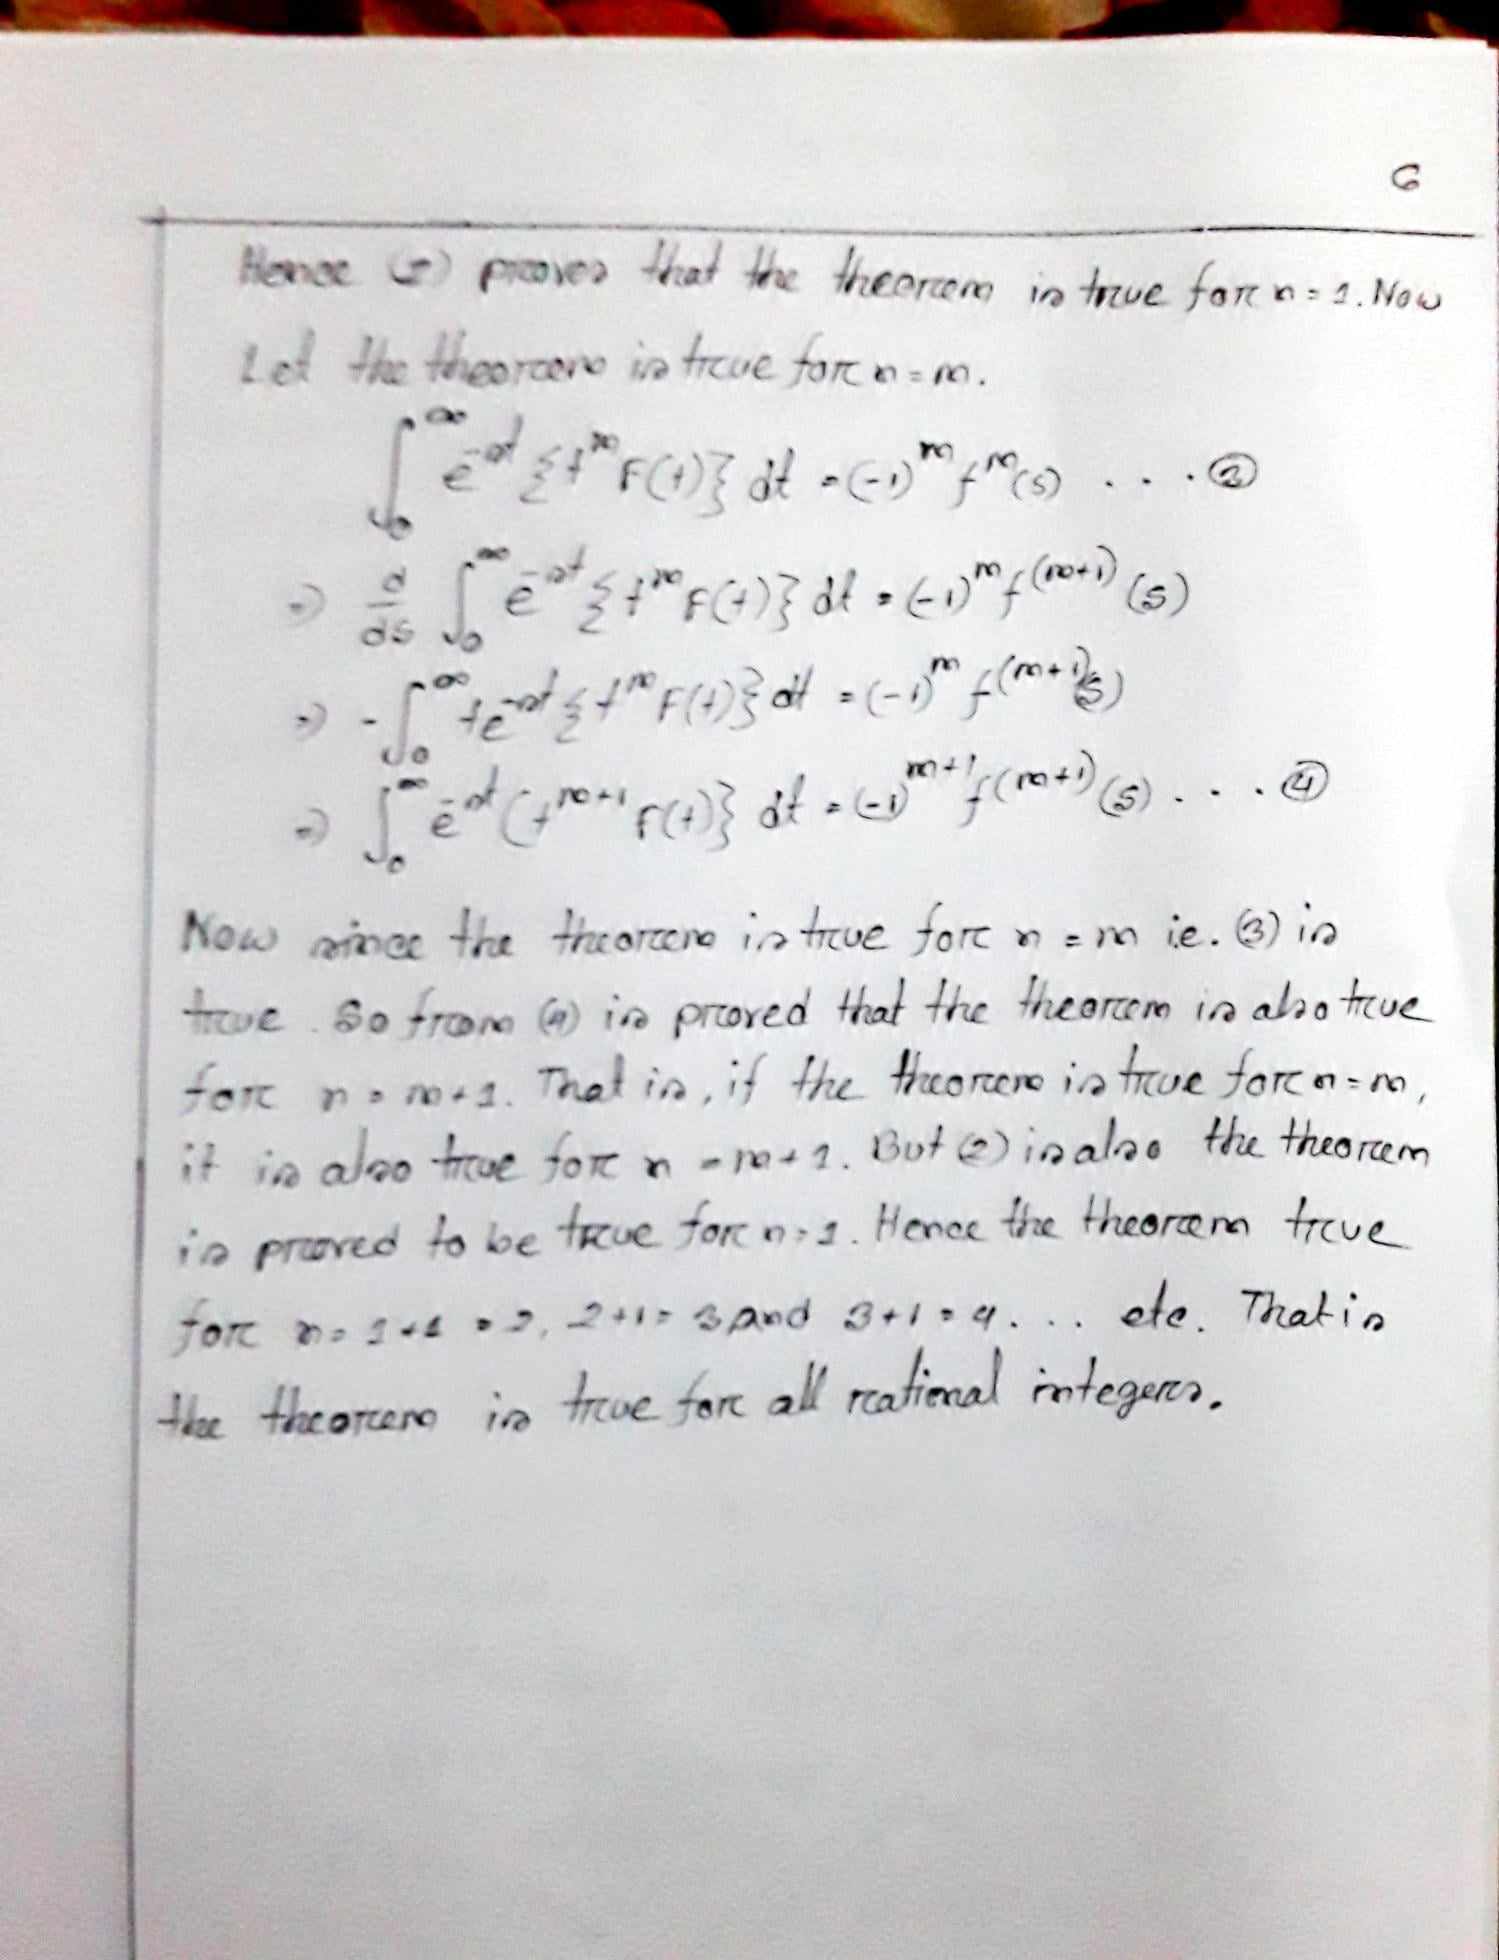 6
Hence (2) proves that the theorem is true for n = 1. Now
Let the theorem is true for n = m.
∫₀^∞ e^{-st} {t^m F(t)} dt = (-1)^m f^m(s) . . . ②
⇒ d/ds ∫₀^∞ e^{-st} {t^m F(t)} dt = (-1)^m f^{(m+1)} (s)
⇒ - ∫₀^∞ te^{-st} {t^m F(t)} dt = (-1)^m f^{(m+1)}(s)
⇒ ∫₀^∞ e^{-st} (t^{m+1} F(t)} dt = (-1)^{m+1} f^{(m+1)} (s) . . . ④
Now since the theorem is true for n = m i.e. (3) is
true. So from (4) is proved that the theorem is also true
for n = m+1. That is, if the theorem is true for n = m,
it is also true for n = m+1. But (2) is also the theorem
is proved to be true for n = 1. Hence the theorem true
for n = 1+1 = 2, 2+1 = 3 and 3+1 = 4 . . . etc. That is
the theorem is true for all rational integers.